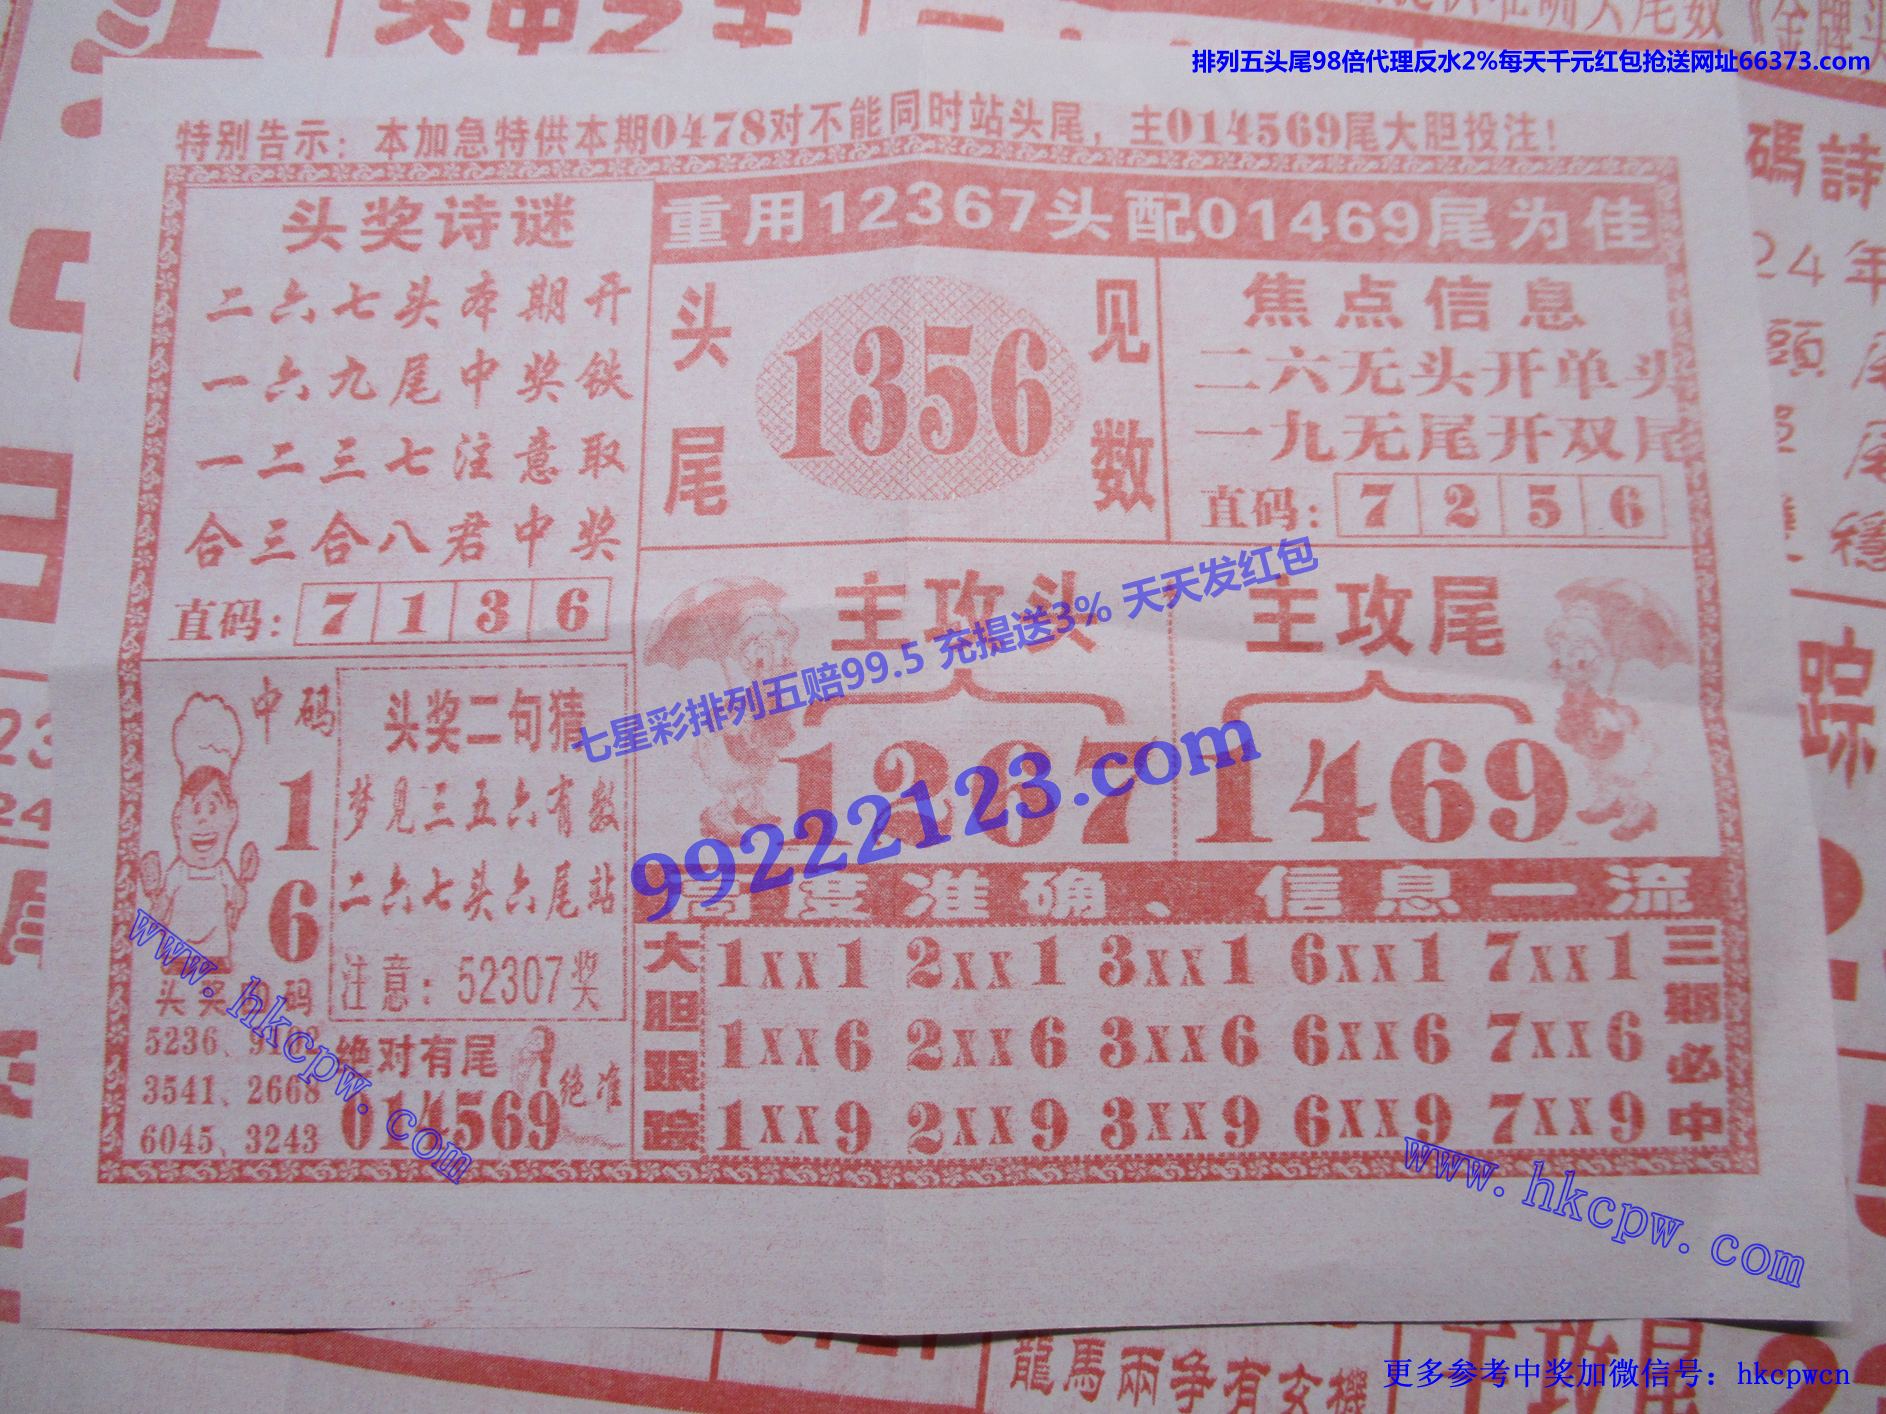 排列五头尾98倍代理反水2%每天千元红包抢送网址66373.com
特别告示：本加急特供本期0478对不能同时站头尾，主014569尾大胆投注！
头奖诗谜
二六七头本期开
一六九尾中奖铁
一二三七注意取
合三合八君中奖
直码：7 1 3 6
重用12367头配01469尾为佳
头尾
1356
见数
焦点信息
二六无头开单头
一九无尾开双尾
直码：7 2 5 6
主攻头
1267
主攻尾
1469
七星彩排列五赔99.5 充提送3% 天天发红包
99222123.com
中码
1
6
头奖二句猜
梦见三五六有数
二六七头六尾站
注意：52307奖
头奖 码
5236、
3541、2668
6045、3243
绝对有尾
014569
绝准
高度准确、信息一流
大胆跟踪
1xx1 2xx1 3xx1 6xx1 7xx1
1xx6 2xx6 3xx6 6xx6 7xx6
1xx9 2xx9 3xx9 6xx9 7xx9
三期必中
www.hkcpw.com
www.hkcpw.com
碼詩
24年
頭尾
尾
穩
踪
23
24
龍馬兩争有玄機
主攻尾
更多参考中奖加微信号：hkcpwcn